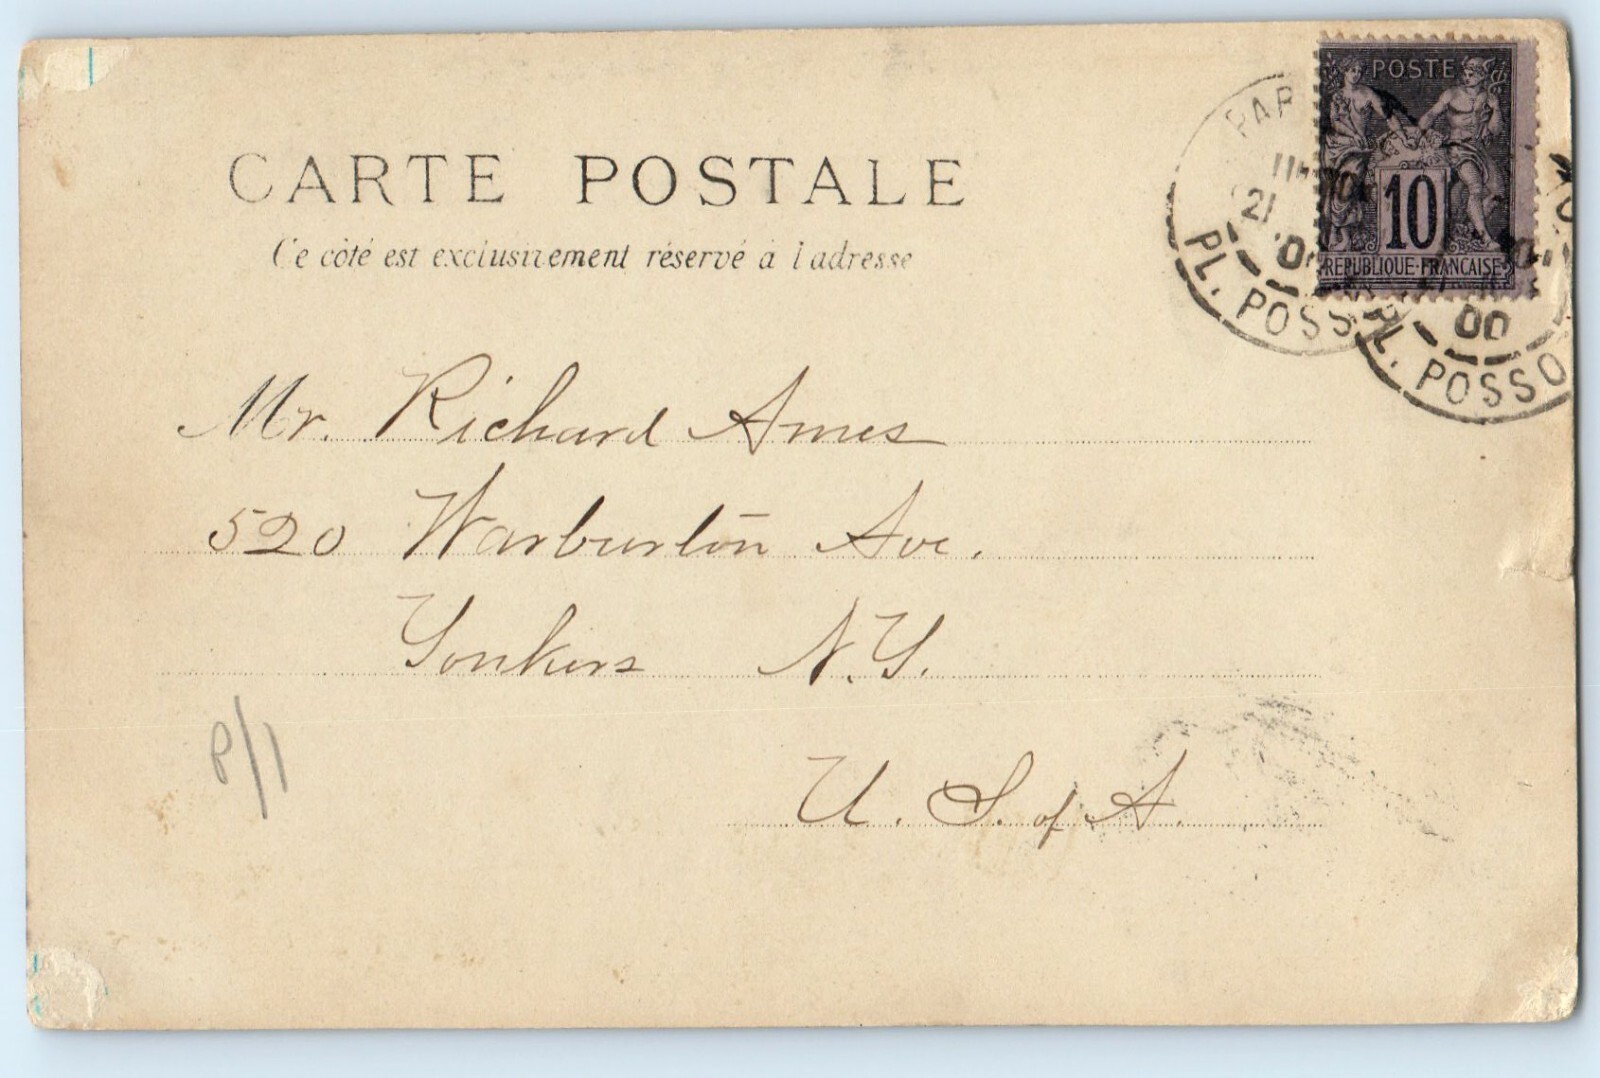 CARTE POSTALE
Ce côté est exclusivement réservé à l'adresse
POSTE
10
REPUBLIQUE FRANCAISE
PAR
21
PL. POSSO
00
PL. POSSO
Mr. Richard Ames
520 Warburton Ave.
Yonkers N.Y.
U. S. of A.
P/1